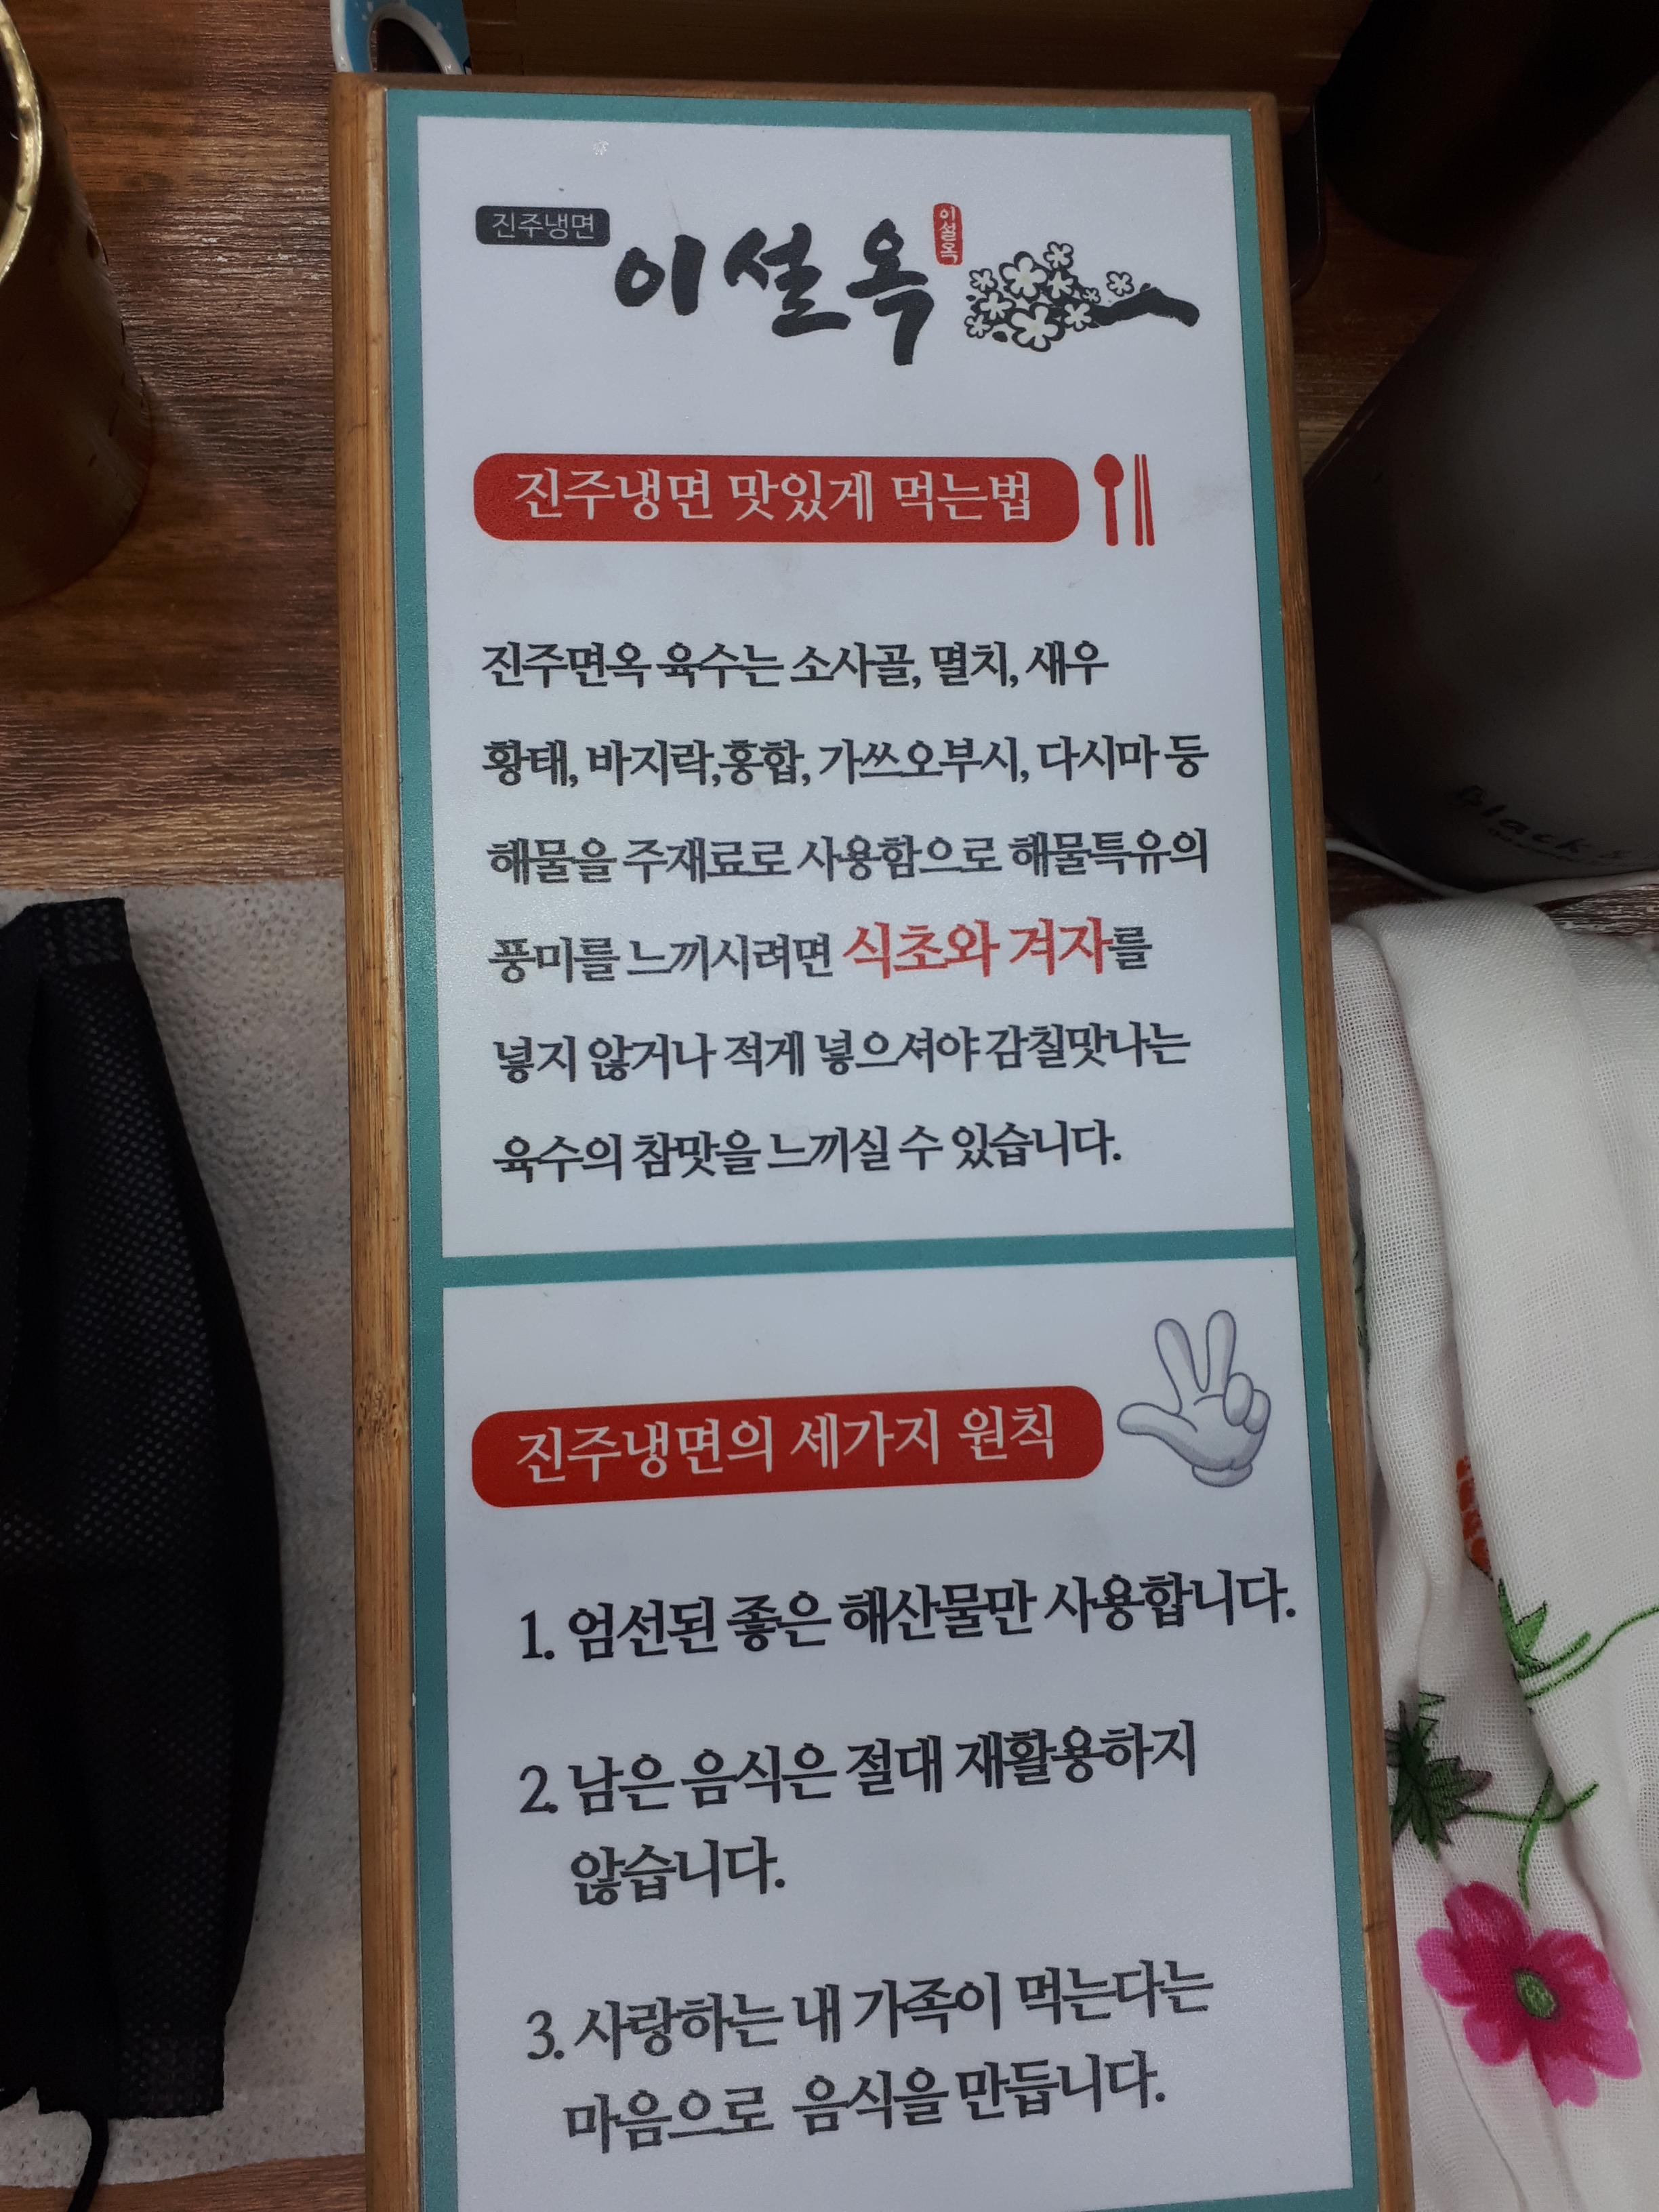 진주냉면
이설옥
이설옥
진주냉면 맛있게 먹는법
진주면옥 육수는 소사골, 멸치, 새우
황태, 바지락,홍합, 가쓰오부시, 다시마 등
해물을 주재료로 사용함으로 해물특유의
풍미를 느끼시려면 식초와 겨자를
넣지 않거나 적게 넣으셔야 감칠맛나는
육수의 참맛을 느끼실 수 있습니다.
진주냉면의 세가지 원칙
1. 엄선된 좋은 해산물만 사용합니다.
2. 남은 음식은 절대 재활용하지
않습니다.
3. 사랑하는 내 가족이 먹는다는
마음으로 음식을 만듭니다.
Black &